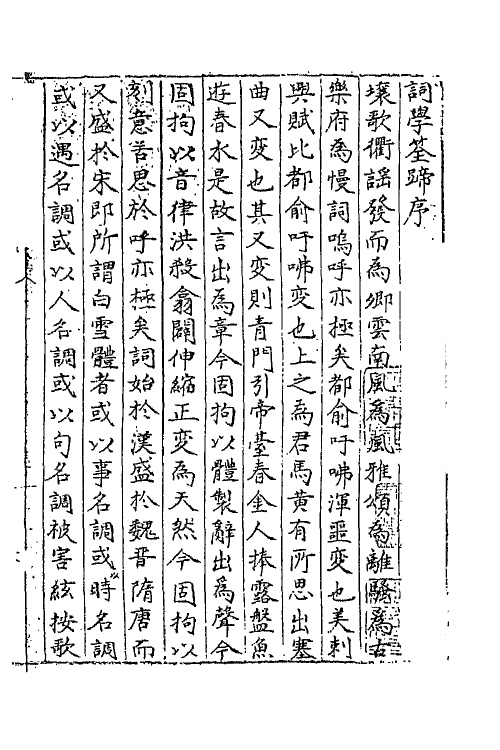 詞學筌蹄序
壤歌衢謡發而為卿雲南風為風雅頌為離騷為古
樂府為慢詞嗚呼亦極矣都俞吁咈渾噩變也美刺
興賦比都俞吁咈變也上之為君馬黄有所思出塞
曲又变也其又变則青門引帝臺春金人捧露盤魚
遊春水是故言出為章今固拘以體製辭出為聲今
固拘以音律洪殺翕闢伸縮正変為天然今固拘以
刻意苦思於呼亦極矣詞始於漢盛於魏晋隋唐而
又盛於宋即所謂白雪體者或以事名調或以時名調
或以遇名調或以人名調或以句名調被害絃按歌